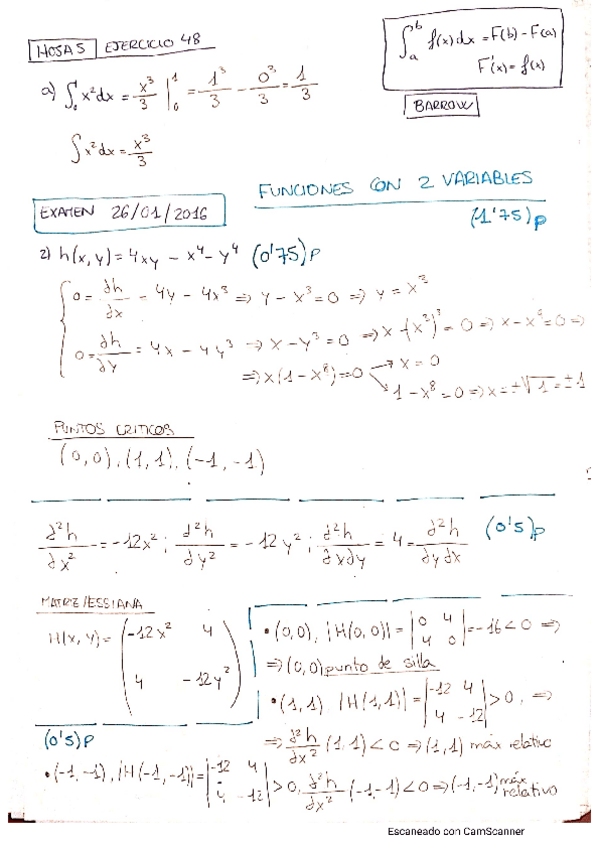 HOJA 5 EJERCICIO 48
∫ₐᵇ f(x)dx = F(b) - F(a)
F'(x) = f(x)
BARROW
a) ∫₀¹ x²dx = x³/3 |₀¹ = 1³/3 - 0³/3 = 1/3
∫x²dx = x³/3
FUNCIONES CON 2 VARIABLES
EXAMEN 26/01/2016
(1'75)p
2) h(x,y) = 4xy - x⁴ - y⁴ (0'75)p
0 = ∂h/∂x = 4y - 4x³ ⇒ y - x³ = 0 ⇒ y = x³
0 = ∂h/∂y = 4x - 4y³ ⇒ x - y³ = 0 ⇒ x - (x³)³ = 0 ⇒ x - x⁹ = 0 ⇒
⇒ x(1 - x⁸) = 0 → x = 0
→ 1 - x⁸ = 0 ⇒ x = ±√1 = ±1
PUNTOS CRITICOS
(0,0), (1,1), (-1,-1)
∂²h/∂x² = -12x² ; ∂²h/∂y² = -12y² ; ∂²h/∂x∂y = 4 = ∂²h/∂y∂x (0'5)p
MATRIZ HESSIANA
H(x,y) = (-12x² 4
4 -12y²)
• (0,0), |H(0,0)| = |0 4
4 0| = -16 < 0 ⇒
⇒ (0,0) punto de silla
• (1,1) |H(1,1)| = |-12 4
4 -12| > 0, ⇒
⇒ ∂²h/∂x² (1,1) < 0 ⇒ (1,1) máx relativo
(0'5)p
• (-1,-1), |H(-1,-1)| = |-12 4
4 -12| > 0, ∂²h/∂x² (-1,-1) < 0 ⇒ (-1,-1) máx relativo
Escaneado con CamScanner